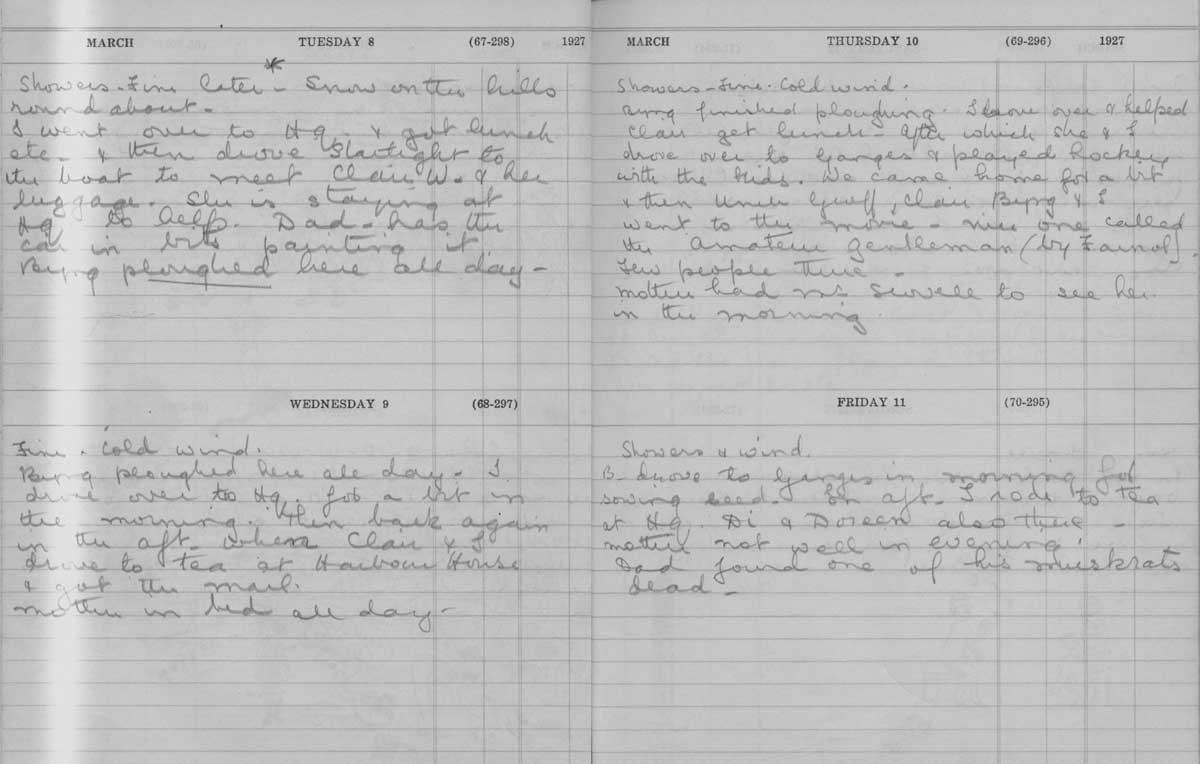 MARCH TUESDAY 8 (67-298) 1927
*
Showers - Fine later - Snow on the hills
round about -
I went over to Hq. & got lunch
etc - & then drove Starlight to
the boat to meet Clair W. & her
luggage. She is staying at
Hq to help. Dad - has the
car in bits painting it
Byng ploughed here all day -
WEDNESDAY 9 (68-297)
Fine. Cold wind.
Byng ploughed here all day - I
drove over to Hq. for a bit in
the morning. Then back again
in the aft. when Clair & I
drove to tea at Harbour House
& got the mail.
Mother in bed all day -
MARCH THURSDAY 10 (69-296) 1927
Showers - Fine. Cold wind.
Byng finished ploughing. I over & helped
Clair get lunch after which she & I
drove over to Ganges & played hockey
with the kids. We came home for a bit
& then Uncle Geoff, Clair Byng & I
went to the movie - nice one called
the Amateur gentleman (by Farnol).
Few people there -
Mother had to see her
in the morning.
FRIDAY 11 (70-295)
Showers & wind.
B - drove to Ganges in morning for
sowing seed. In aft - I rode to tea
at Hq. Di & Doreen also there -
Mother not well in evening.
Dad found one of his muskrats
dead -